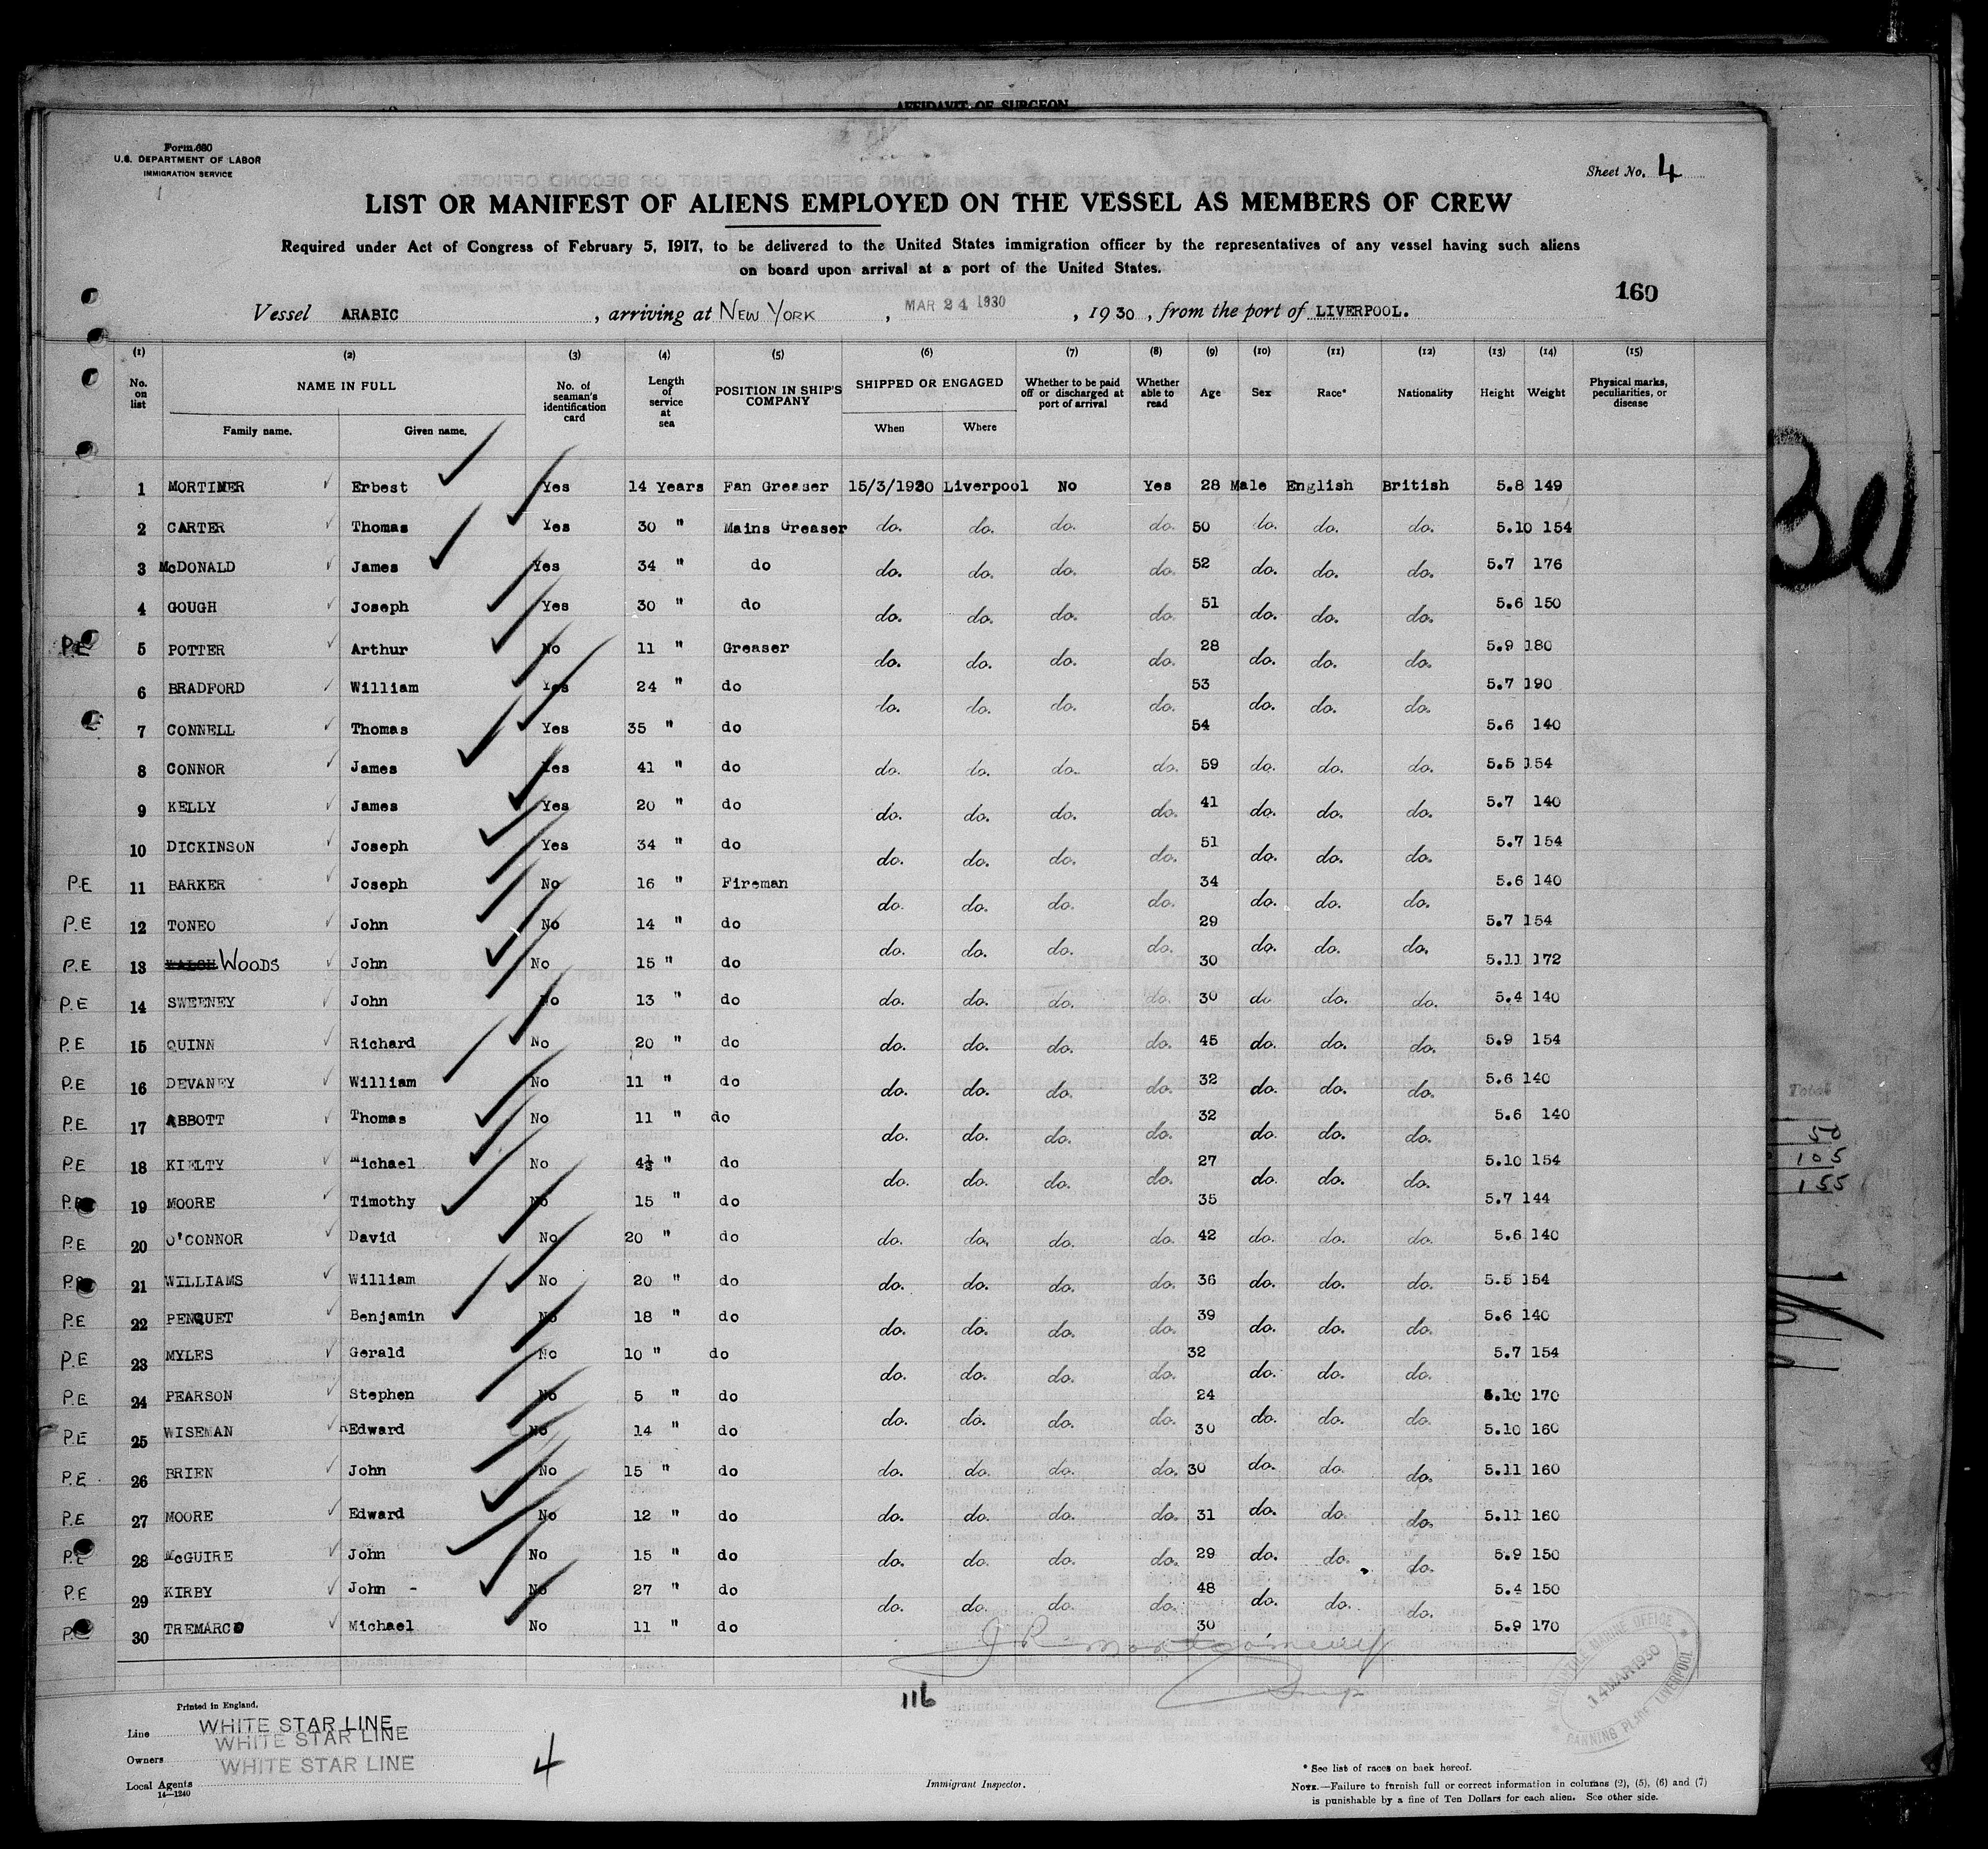 AFFIDAVIT OF SURGEON
Form 680
U.S. DEPARTMENT OF LABOR
IMMIGRATION SERVICE
Sheet No. 4
LIST OR MANIFEST OF ALIENS EMPLOYED ON THE VESSEL AS MEMBERS OF CREW
Required under Act of Congress of February 5, 1917, to be delivered to the United States immigration officer by the representatives of any vessel having such aliens
on board upon arrival at a port of the United States.
160
Vessel ARABIC, arriving at NEW YORK, MAR 24 1930, 1930, from the port of LIVERPOOL.
(1) (2) (3) (4) (5) (6) (7) (8) (9) (10) (11) (12) (13) (14) (15)
No. on list NAME IN FULL Family name. Given name. No. of seaman's identification card Length of service at sea POSITION IN SHIP'S COMPANY SHIPPED OR ENGAGED When Where Whether to be paid off or discharged at port of arrival Whether able to read Age Sex Race* Nationality Height Weight Physical marks, peculiarities, or disease
1 MORTIMER Erbest Yes 14 Years Fan Greaser 15/3/1930 Liverpool No Yes 28 Male English British 5.8 149
2 CARTER Thomas Yes 30 " Mains Greaser do. do. do. do. 50 do. do. do. 5.10 154
3 McDONALD James Yes 34 " do do. do. do. do. 52 do. do. do. 5.7 176
4 GOUGH Joseph Yes 30 " do do. do. do. do. 51 do. do. do. 5.6 150
P.E 5 POTTER Arthur No 11 " Greaser do. do. do. do. 28 do. do. do. 5.9 180
6 BRADFORD William Yes 24 " do do. do. do. do. 53 do. do. do. 5.7 190
7 CONNELL Thomas Yes 35 " do 54 5.6 140
8 CONNOR James Yes 41 " do do. do. do. do. 59 do. do. do. 5.5 154
9 KELLY James Yes 20 " do do. do. do. do. 41 do. do. do. 5.7 140
10 DICKINSON Joseph Yes 34 " do do. do. do. do. 51 do. do. do. 5.7 154
P.E 11 BARKER Joseph No 16 " Fireman do. do. do. do. 34 do. do. do. 5.6 140
P.E 12 TONEO John No 14 " do do. do. do. do. 29 do. do. do. 5.7 154
P.E 13 WALSH WOODS John No 15 " do 30 5.11 172
P.E 14 SWEENEY John No 13 " do do. do. do. do. 30 do do. do. 5.4 140
P.E 15 QUINN Richard No 20 " do do. do. do. do. 45 do. do. do. 5.9 154
P.E 16 DEVANEY William No 11 " do do. do. do. do. 32 do. do. do. 5.6 140
P.E 17 ABBOTT Thomas No 11 " do do. do. do. do. 32 do. do. do. 5.6 140
P.E 18 KIELTY Michael No 4½ " do do. do. do. do. 27 do. do. do. 5.10 154
P.E 19 MOORE Timothy No 15 " do 35 5.7 144
P.E 20 O'CONNOR David No 20 " do do. do. do. do. 42 do. do. do. 5.6 140
P.E 21 WILLIAMS William No 20 " do do. do. do. do. 36 do. do. do. 5.5 154
P.E 22 PENQUET Benjamin No 18 " do do. do. do. do. 39 do. do. do. 5.6 140
P.E 23 MYLES Gerald No 10 " do do. do. do. do. 32 do. do. do. 5.7 154
P.E 24 PEARSON Stephen No 5 " do do. do. do. do. 24 do. do. do. 5.10 170
P.E 25 WISEMAN Edward No 14 " do 30 5.10 160
P.E 26 BRIEN John No 15 " do do. do. do. do. 30 do. do. do. 5.11 160
P.E 27 MOORE Edward No 12 " do do. do. do. do. 31 do. do. do. 5.11 160
P.E 28 McGUIRE John No 15 " do do. do. do. do. 29 do. do. do. 5.9 150
P.E 29 KIRBY John - No 27 " do do. do. do. do. 48 do. do. do. 5.4 150
P.E 30 TREMARCO Michael No 11 " do 30 5.9 170
J R Montgomery
Total
50
105
155
MERCANTILE MARINE OFFICE
14 MAR 1930
CANNING PLACE LIVERPOOL
116
Printed in England.
Line WHITE STAR LINE
WHITE STAR LINE
Owners WHITE STAR LINE
Local Agents
14—1240
4
Immigrant Inspector.
* See list of races on back hereof.
NOTE.—Failure to furnish full or correct information in columns (2), (5), (6) and (7)
is punishable by a fine of Ten Dollars for each alien. See other side.